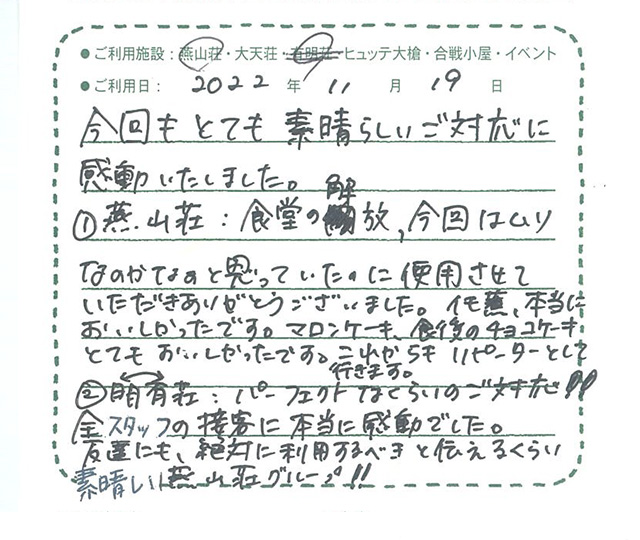 ●ご利用施設：燕山荘・大天荘・有明荘・ヒュッテ大槍・合戦小屋・イベント
●ご利用日：2022年11月19日
今回もとても素晴らしいご対応に
感動いたしました。
①燕山荘：食堂の解放、今回はムリ
なのかなぁと思っていたのに使用させて
いただきありがとうございました。イモ蒸、本当に
おいしかったです。マロンケーキ、食後のチョコケーキ
とてもおいしかったです。これからもリピーターとして
行きます。
②明有荘：パーフェクトなくらいのご対応!!
全スタッフの接客に本当に感動でした。
友達にも、絶対に利用するべきと伝えるくらい
素晴しい燕山荘グループ!!